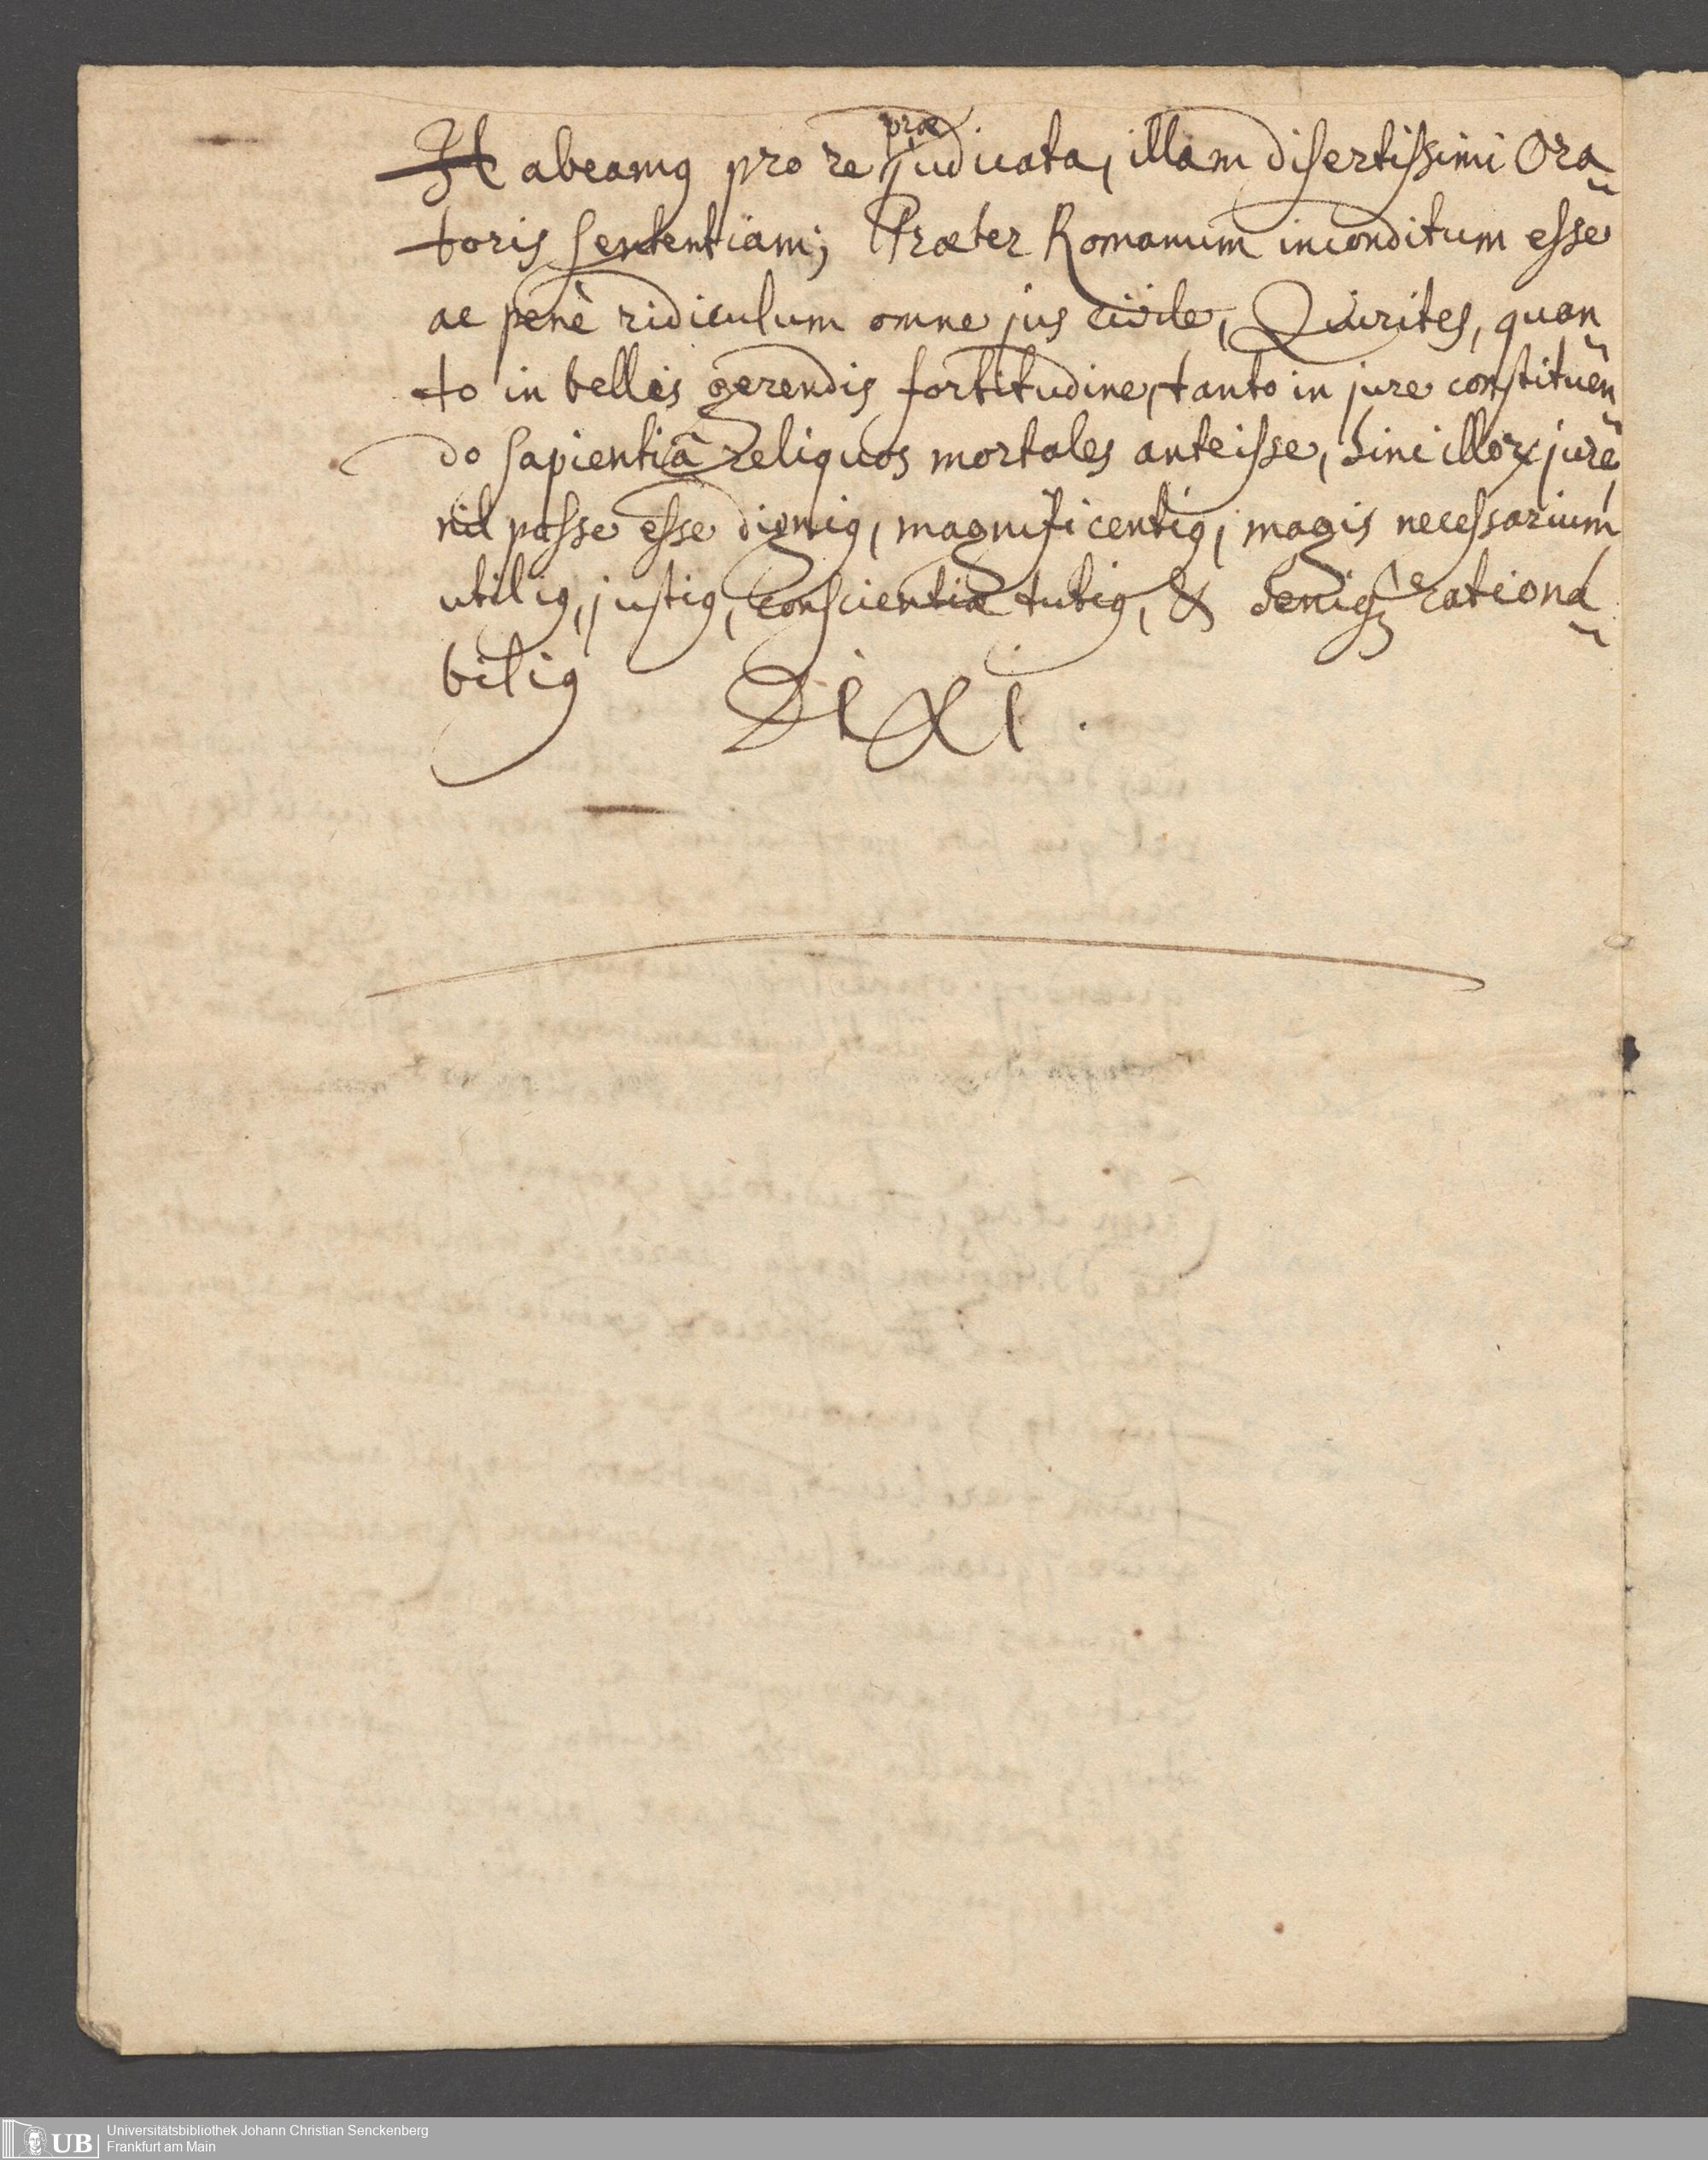 Habeamꝰ pro re præjudicata, illam disertissimi Ora
toris sententiam; Præter Romanum inconditum esse
ac penè ridiculum omne jus civile, Quirites, quan
to in bellis gerendis fortitudine, tanto in jure constituen
do sapientiâ reliquos mortales anteisse, sine illoꝝ jure
nil posse esse digniꝰ, magnificentiꝰ, magis necessarium
utiliꝰ, justiꝰ, conscientiæ tutiꝰ, & deniqꝫ rationa
biliꝰ Dixi.
UB Universitätsbibliothek Johann Christian Senckenberg
Frankfurt am Main